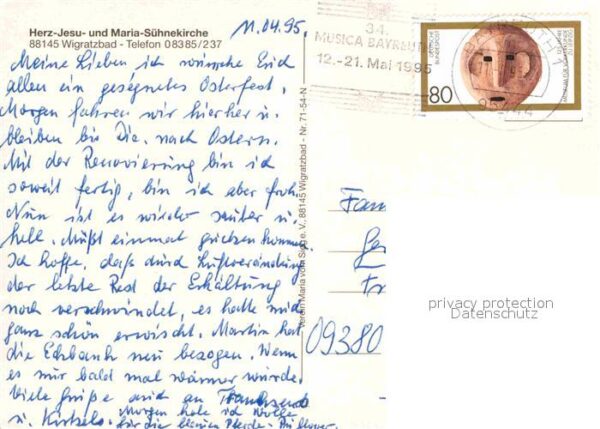 11.04.95.
Herz-Jesu- und Maria-Sühnekirche
88145 Wigratzbad - Telefon 08385/237
Meine Lieben ich wünsche Euch
allen ein gesegnetes Osterfest.
Morgen fahren wir hierher u.
bleiben bis Die. nach Ostern.
Mit der Renovierung bin ich
soweit fertig, bin ich aber froh.
Nun ist es wieder sauber u.
hell. Müßt einmal gucken kommen.
Ich hoffe, daß durch Luftveränderung
der letzte Rest der Erkältung
noch verschwindet, es hatte mich
ganz schön erwischt. Martin hat
die Eckbank neu bezogen. Wenn
es nur bald mal wärmer würde.
Viele Grüße auch an
u.
Morgen hole ich Wolle
für die kleinen Pferde-Pullover.
Verein Maria vom Sieg e. V., 88145 Wigratzbad - Nr. 71-54-N
34.
MUSICA BAYREUTH
12.-21. Mai 1995
BAYREUTH 1
DEUTSCHE
BUNDESPOST
80
Fam
09380
privacy protection
Datenschutz